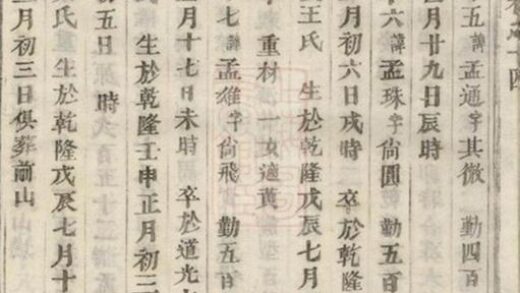 之十四
十五諱孟通字其徵 勤四百
月廿九日辰時
十六諱孟珠字尙圓 勤五百
月初六日戌時 卒於乾隆
王氏 生於乾隆戊辰七月
七諱孟雄字尙飛 勤五百
重材 一女適黃
月十七日未時 卒於道光
氏 生於乾隆壬申正月初三
初五日 時
氏 生於乾隆戊辰七月十
月初三日俱葬前山